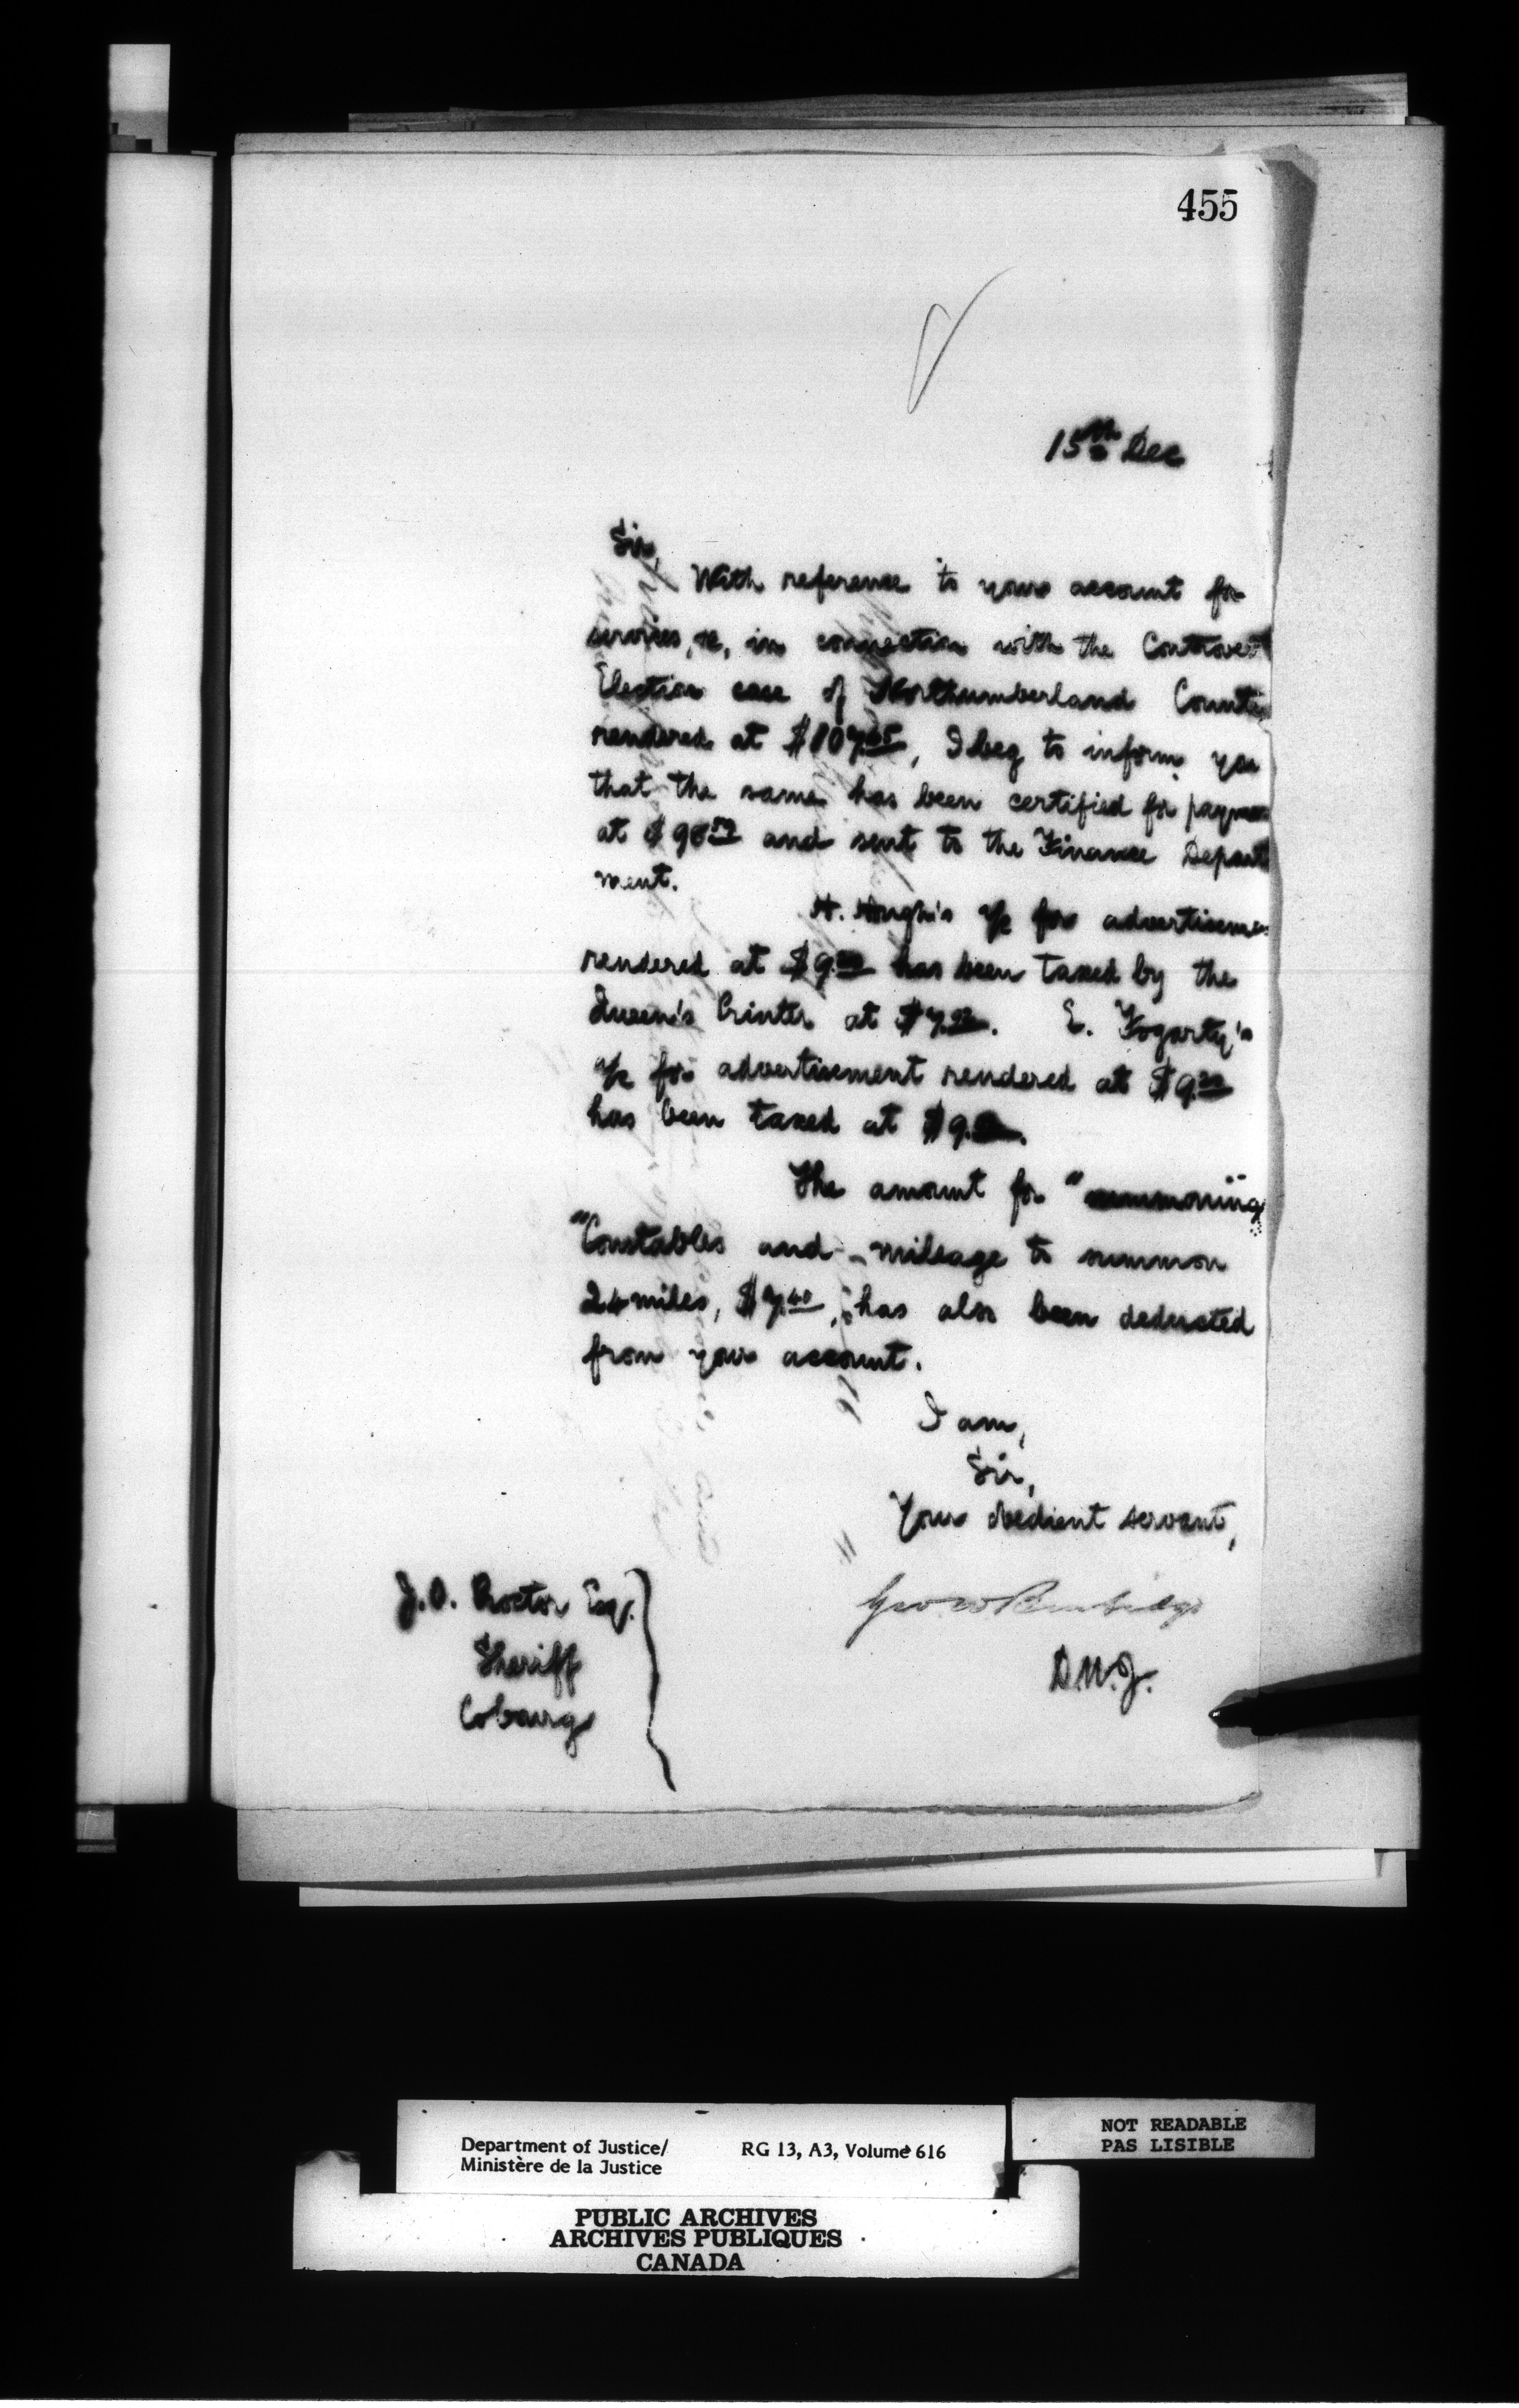 455
15th Dec
Sir,
With reference to your account for
services, &c, in connection with the Controvert
Election case of Northumberland County
rendered at $107.65, I beg to inform you
that the same has been certified for paymen
at $98 and sent to the Finance Depart
ment.
H. Hough's a/c for advertiseme
rendered at $9. has been taxed by the
Queen's Printer at $7. E. Fogarty's
a/c for advertisement rendered at $9.
has been taxed at $9.
The amount for "summoning
"Constables and mileage to summon
24 miles, $7.40, has also been deducted
from your account.
I am,
Sir,
Your obedient servant,
Geo W Burbidge
D.M.J.
J.O. Proctor Esq.
Sheriff
Cobourg
Department of Justice/
Ministère de la Justice
RG 13, A3, Volume 616
NOT READABLE
PAS LISIBLE
PUBLIC ARCHIVES
ARCHIVES PUBLIQUES
CANADA